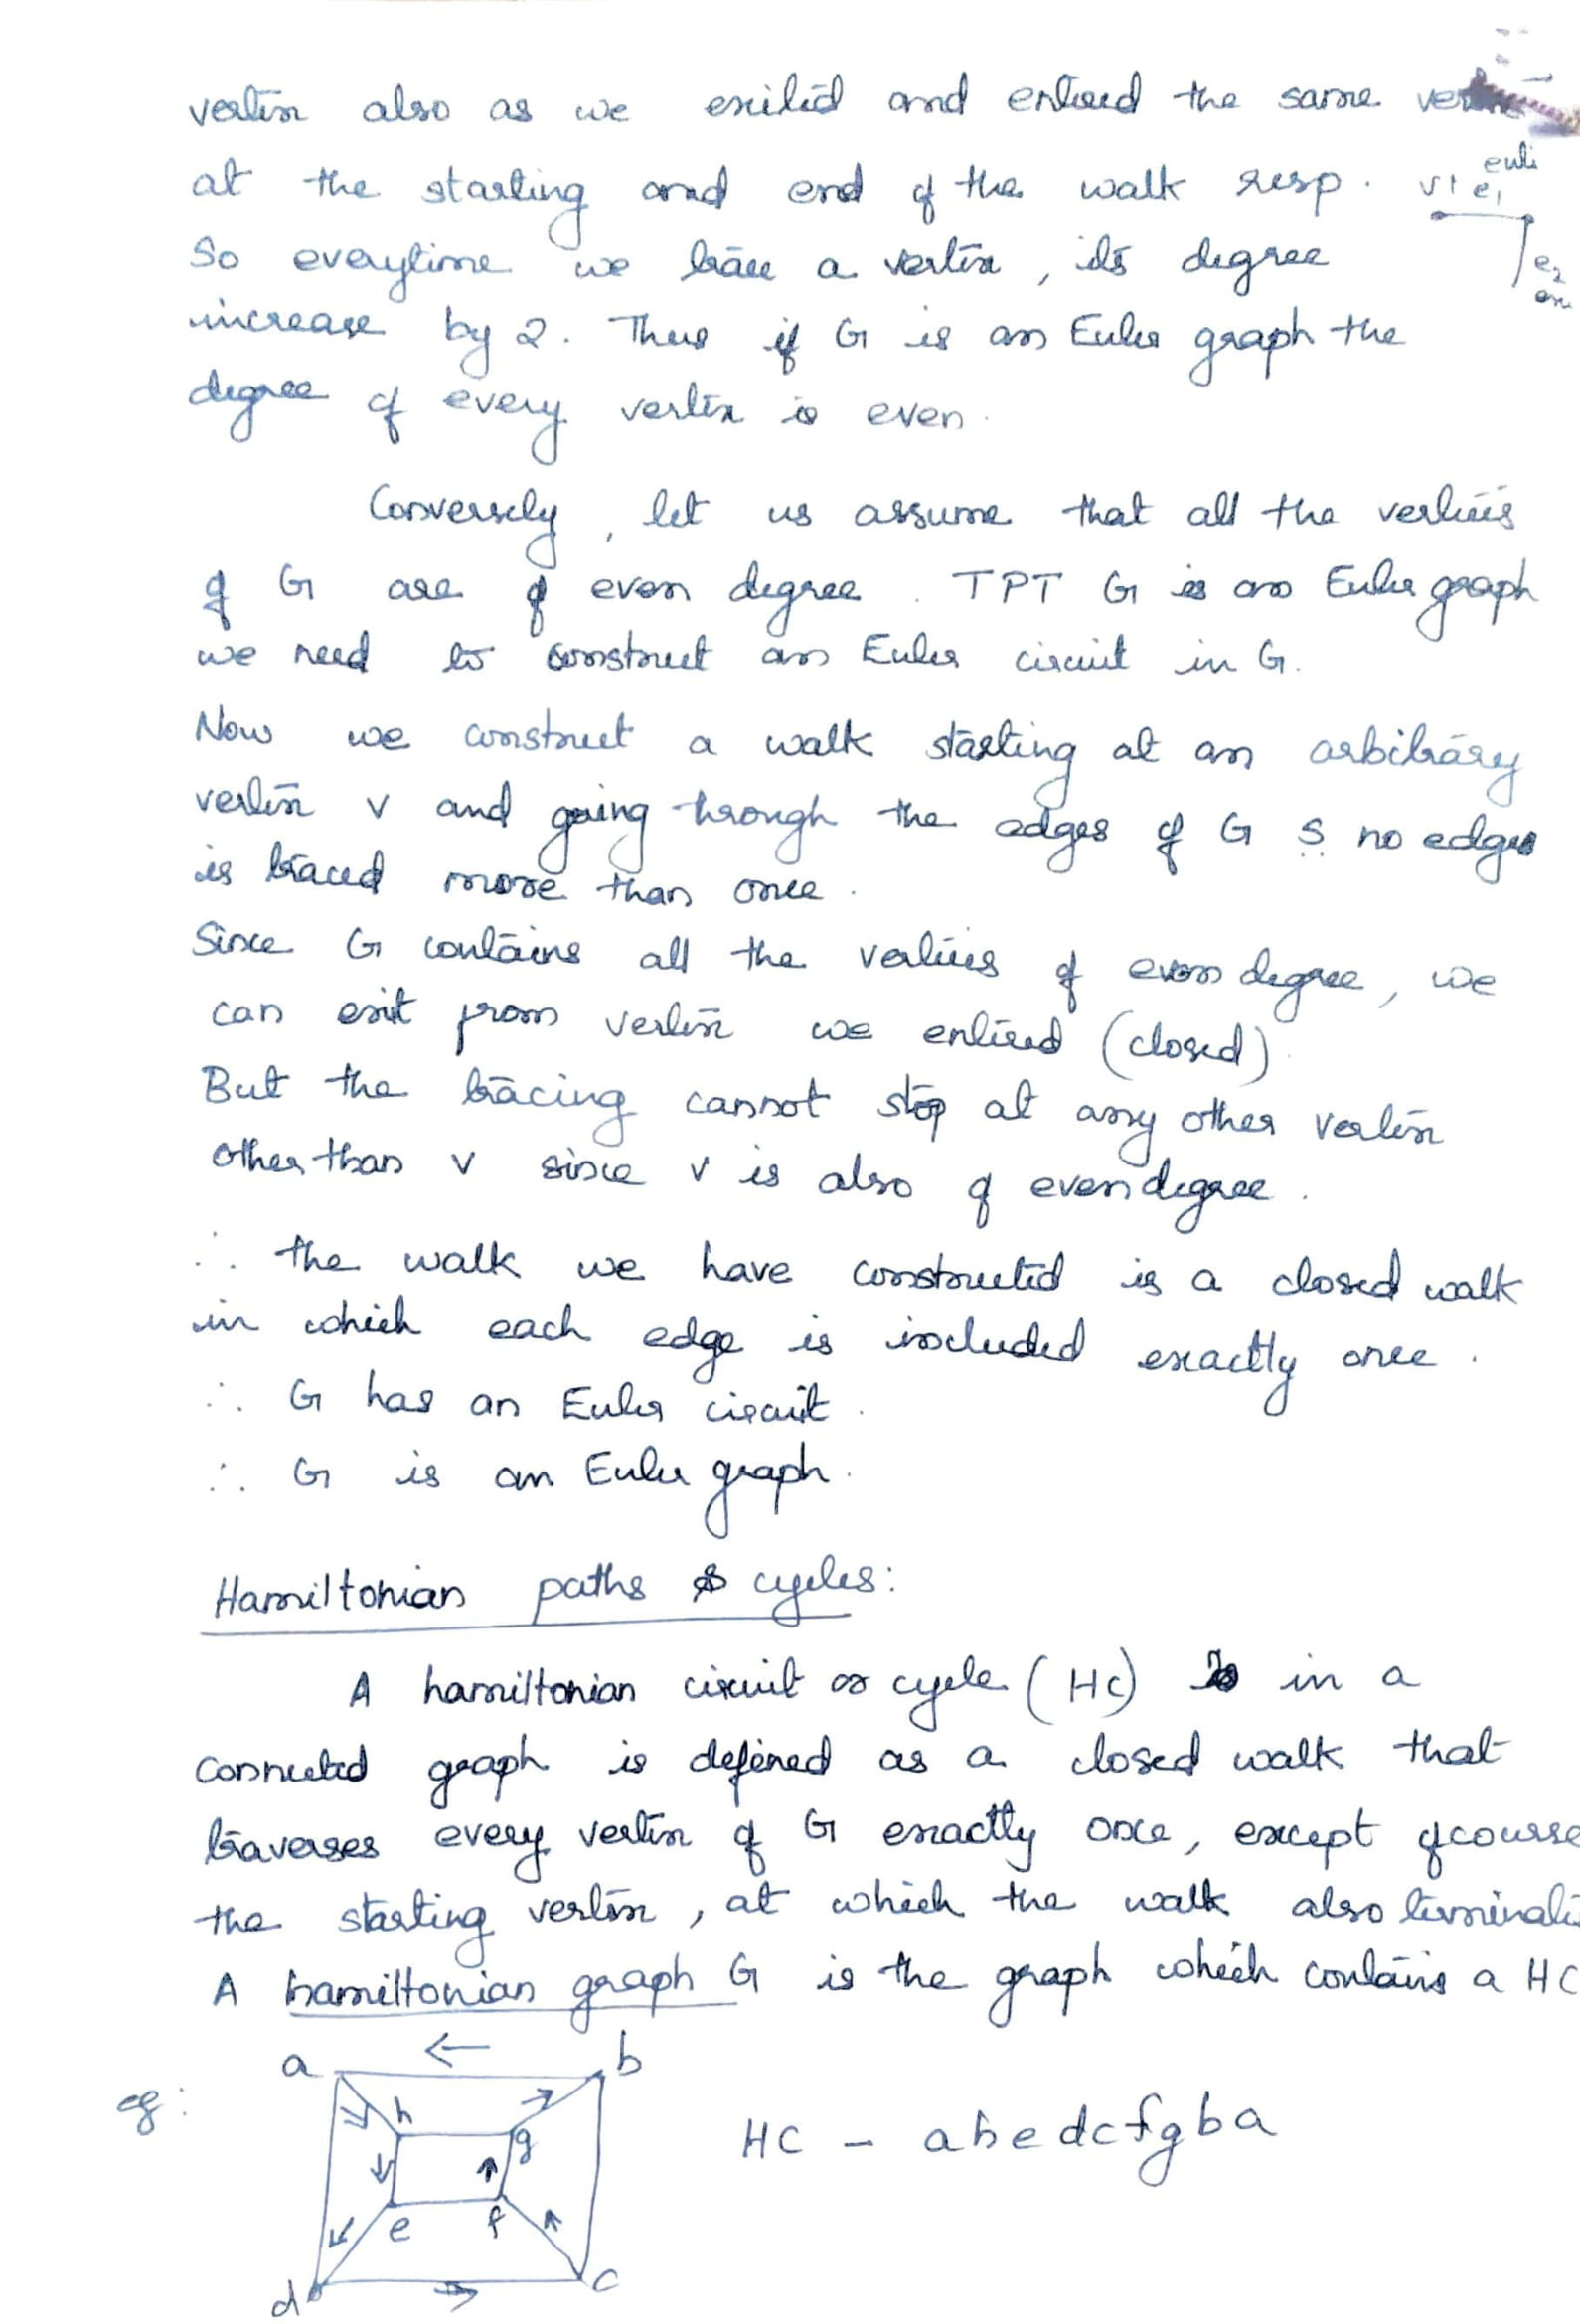 vertex also as we exited and entered the same
at the starting and end of the walk resp. v1 e1
So everytime we trace a vertex, its degree e2
increase by 2. Thus if G is an Euler graph the
degree of every vertex is even.
Conversely, let us assume that all the vertices
of G are of even degree. TPT G is an Euler graph
we need to construct an Euler circuit in G.
Now we construct a walk starting at an arbitrary
vertex v and going through the edges of G S no edges
is traced more than once.
Since G contains all the vertices of even degree, we
can exit from vertex we entered (closed)
But the tracing cannot stop at any other vertex
other than v since v is also of even degree.
∴ the walk we have constructed is a closed walk
in which each edge is included exactly once.
∴ G has an Euler circuit.
∴ G is an Euler graph.
Hamiltonian paths & cycles:
A hamiltonian circuit or cycle (HC) in a
connected graph is defined as a closed walk that
traverses every vertex of G exactly once, except ofcourse
the starting vertex, at which the walk also
A hamiltonian graph G is the graph which contains a HC
eg:
a ← b
h g
HC - ahedcfgba
e f
d c